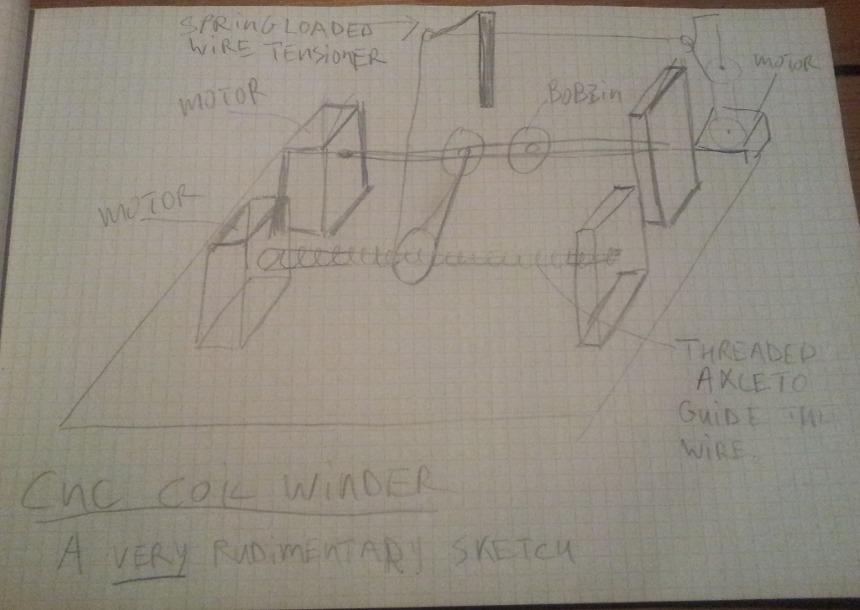 SPRING LOADED
WIRE TENSIONER
MOTOR
MOTOR
BOBBIN
MOTOR
THREADED
AXLE TO
GUIDE THE
WIRE.
CNC COIL WINDER
A VERY RUDIMENTARY SKETCH